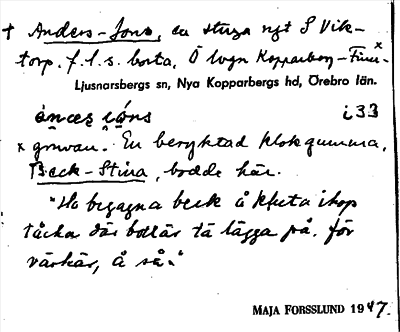 † Anders-Jons, en stuga ngt S Vik-
torp. f.l.s. borta. Ö lvgn Kopparberg - Finn-
Ljusnarsbergs sn, Nya Kopparbergs hd, Örebro län.
i33
x gruvan. En beryktad klokgumma,
Beck-Stina, bodde här.
"Ho begagna beck å kleta ihop
tåcka där bollar tä lägga på. för
värkär, å så."
MAJA FORSSLUND 1947.